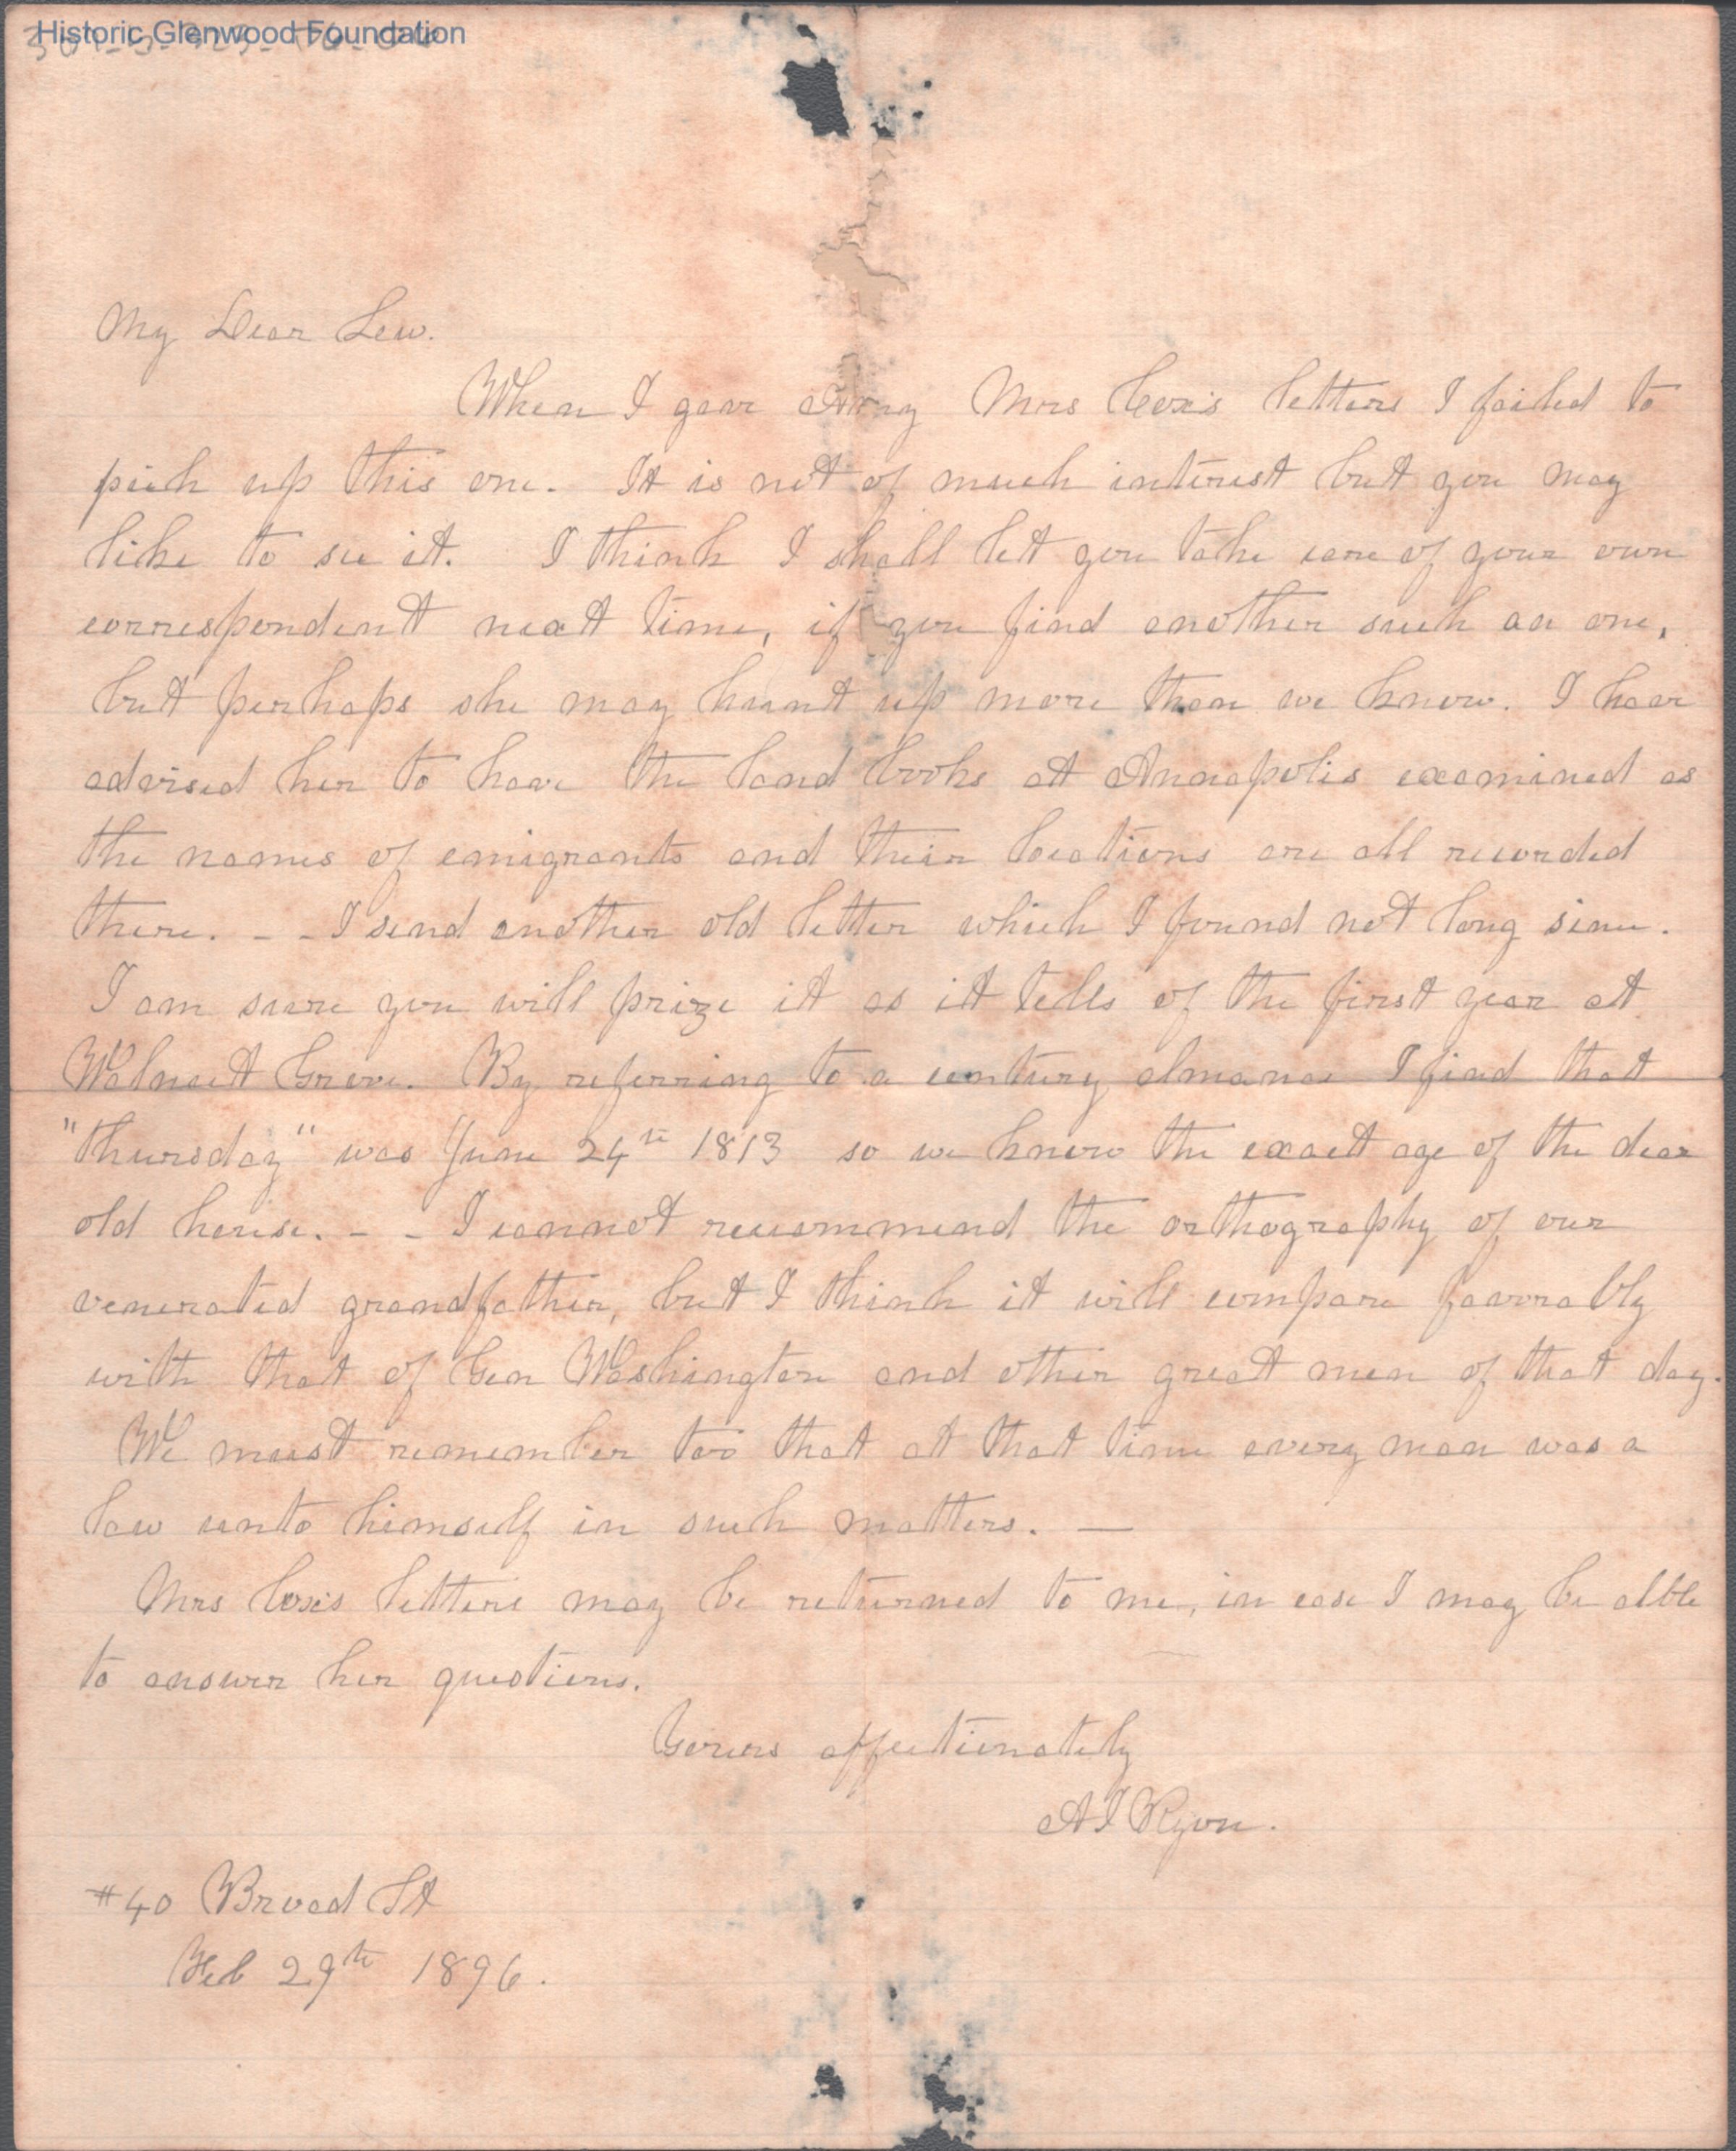 Historic Glenwood Foundation
My Dear Lew.
When I gave Amy Mrs Cox's letters I failed to
pick up this one. It is not of much interest but you may
like to see it. I think I shall let you take care of your own
correspondent next time, if you find another such an one,
but perhaps she may hunt up more than we know. I have
advised her to have the land books at Annapolis examined as
the names of emigrants and their locations are all recorded
there. - - I send another old letter which I found not long since.
I am sure you will prize it as it tells of the first year at
Walnut Grove. By referring to a century almanac I find that
"Thursday" was June 24th 1813 so we know the exact age of the dear
old house. - - I cannot recommend the orthography of our
venerated grandfather, but I think it will compare favorably
with that of Gen Washington and other great men of that day.
We must remember too that at that time every man was a
law unto himself in such matters. —
Mrs Cox's letters may be returned to me, in case I may be able
to answer her questions.
Yours affectionately
A I Ryon.
#40 Broad St
Feb 29th 1896.